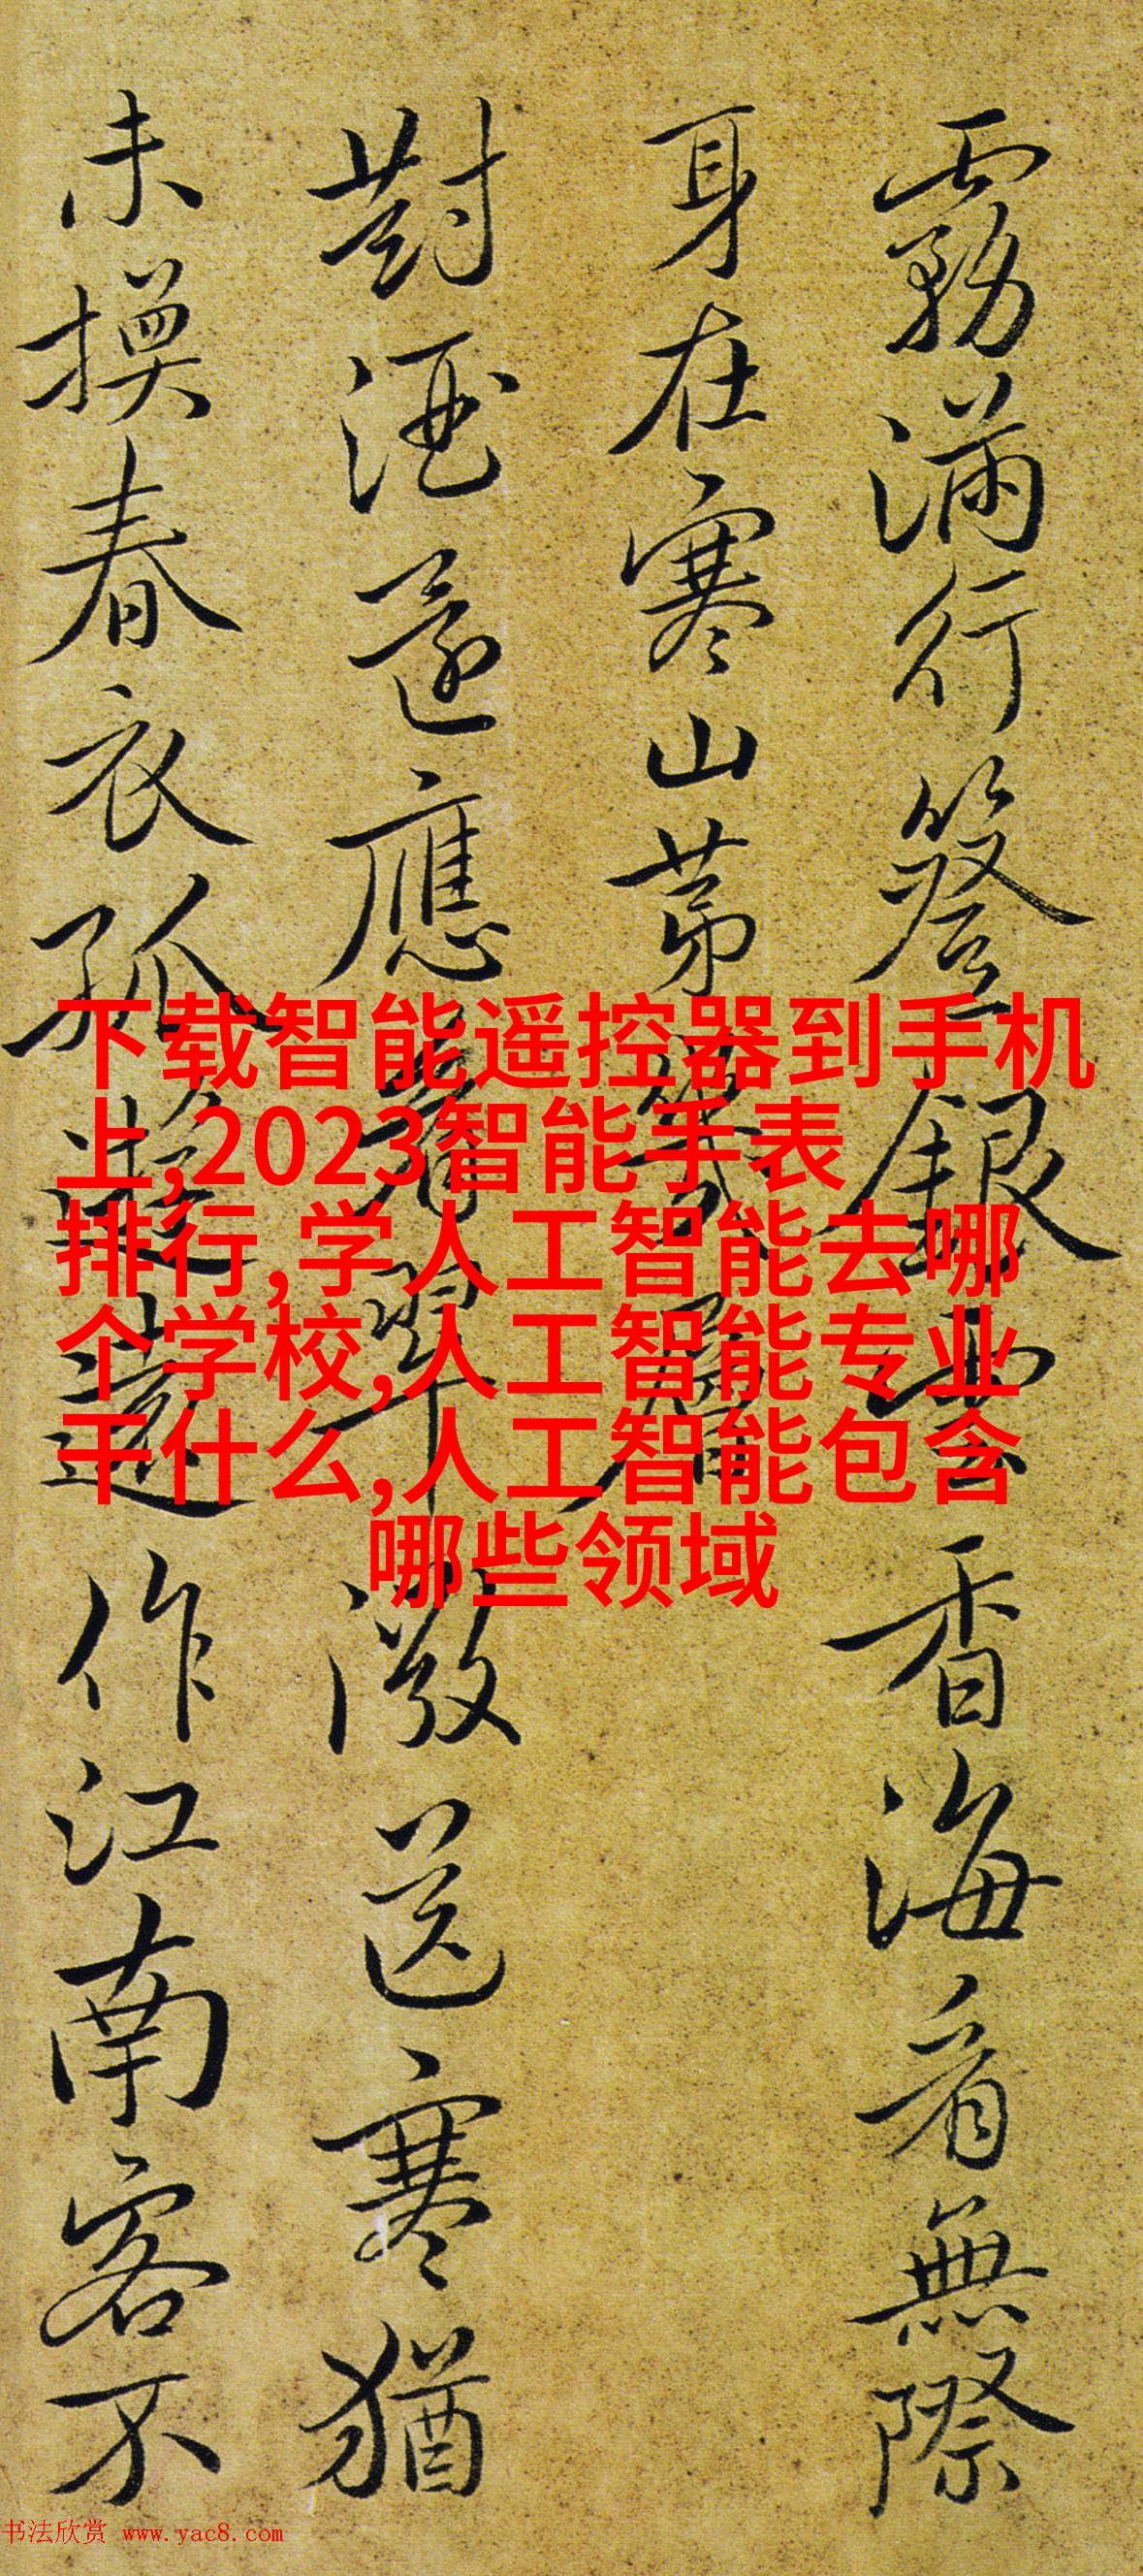 霧滿行簦銀雲香海看無際
身在寒山第幾層
對酒還應看翠微送寒猶
未換春衣孤遊遠作江南客不
下载智能遥控器到手机
上,2023智能手表
排行,学人工智能去哪
个学校,人工智能专业
干什么,人工智能包含
哪些领域
书法欣赏 www.yac8.com